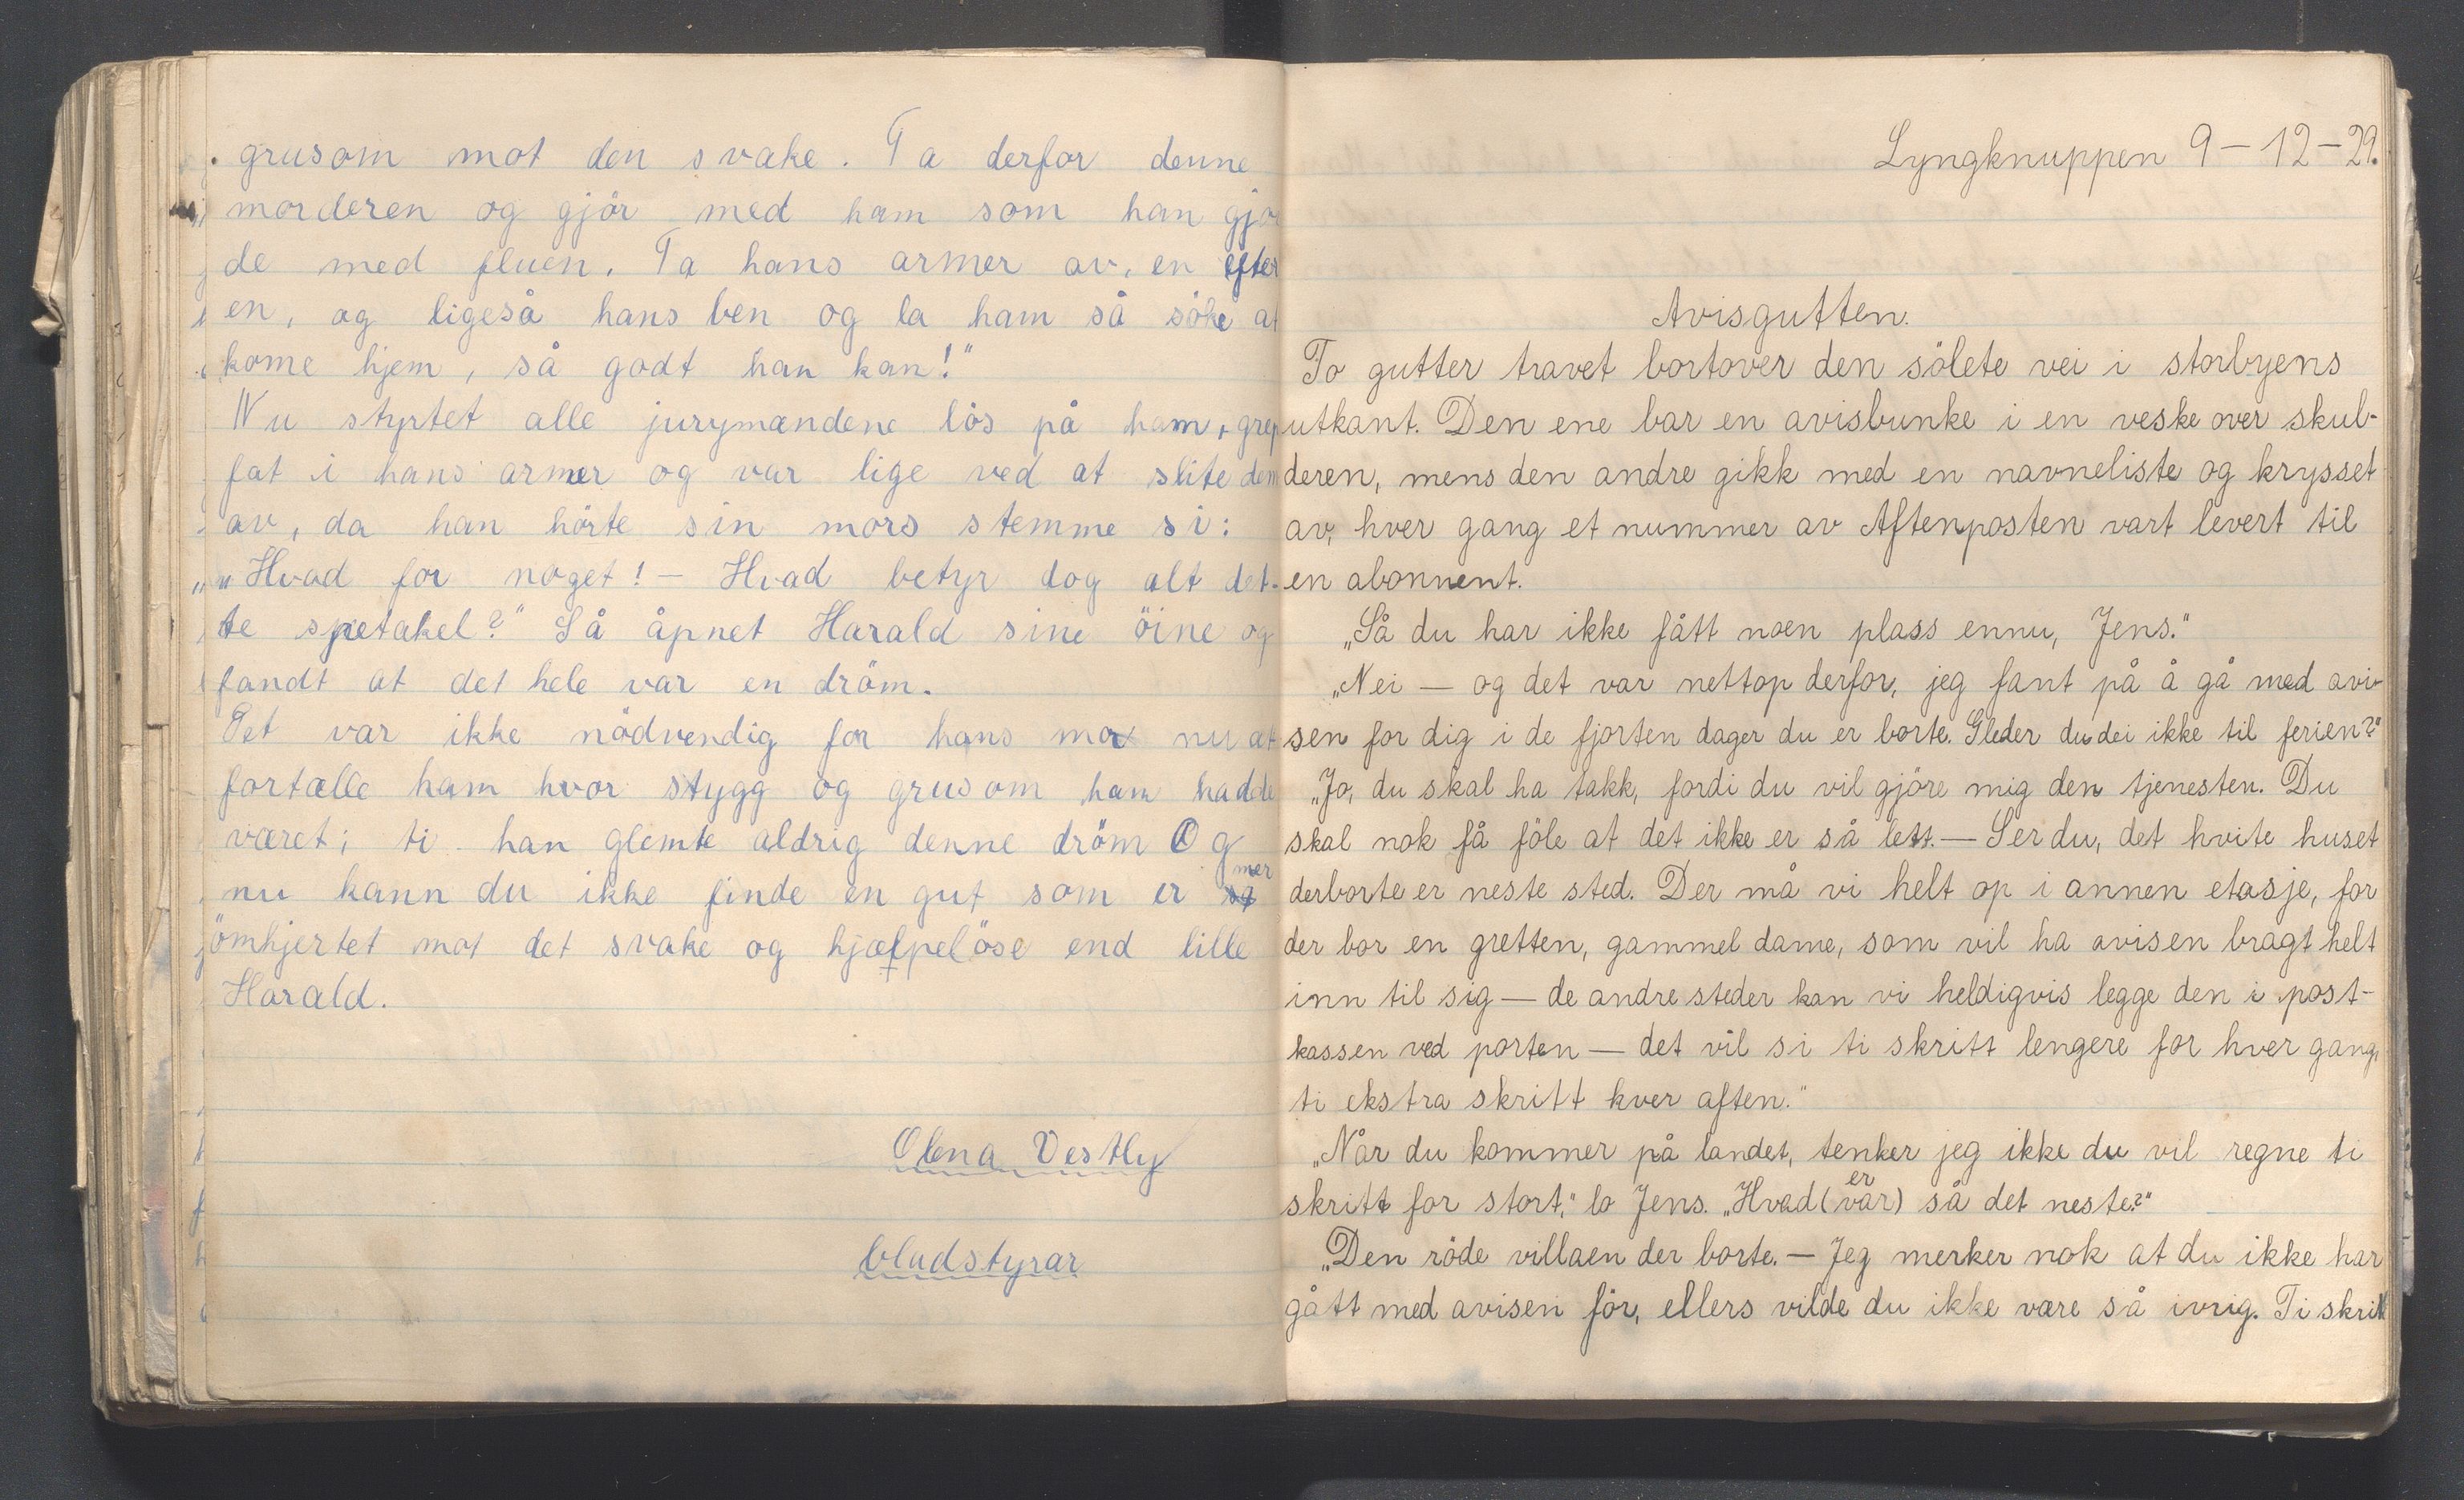 grusom mot den svake. Ta derfor denne
morderen og gjör med ham som han gjor
de med fluen. Ta hans armer av, en efter
en, og ligeså hans ben og la ham så söke at
kome hjem, så godt han kan!"
Nu styrtet alle jurymændene lös på ham, grep
fat i hans armer og var lige ved at slite dem
av, da han hörte sin mors stemme si:
"Hvad for noget! - Hvad betyr dog alt det-
te spetakel?" Så åpnet Harald sine öine og
fandt at det hele var en dröm.
Det var ikke nödvendig for hans mor nu at
fortælle ham hvor stygg og grusom ham hadde
været; ti han glemte aldrig denne dröm Og
nu kann du ikke finde en gut som er mer
ömhjertet mot det svake og hjælpelöse end lille
Harald.
Olena Vestly
bladstyrar
Lyngknuppen 9-12-29.
Avisgutten.
To gutter travet bortover den sölete vei i storbyens
utkant. Den ene bar en avisbunke i en veske over skul-
deren, mens den andre gikk med en navneliste og krysset
av, hver gang et nummer av Aftenposten vart levert til
en abonnent.
"Så du har ikke fått noen plass ennu, Jens."
"Nei — og det var nettop derfor, jeg fant på å gå med avi-
sen for dig i de fjorten dager du er borte. Gleder du dei ikke til ferien?"
"Jo, du skal ha takk, fordi du vil gjöre mig den tjenesten. Du
skal nok få föle at det ikke er så lett. — Ser du, det hvite huset
derborte er neste sted. Der må vi helt op i annen etasje, for
der bor en gretten, gammel dame, som vil ha avisen bragt helt
inn til sig — de andre steder kan vi heldigvis legge den i post-
kassen ved porten — det vil si ti skritt lengere for hver gang,
ti ekstra skritt hver aften."
"Når du kommer på landet, tenker jeg ikke du vil regne ti
skritt for stort," lo Jens. "Hvad (var) er så det neste?"
"Den röde villaen der borte. — Jeg merker nok at du ikke har
gått med avisen för, ellers vilde du ikke være så ivrig. Ti skritt